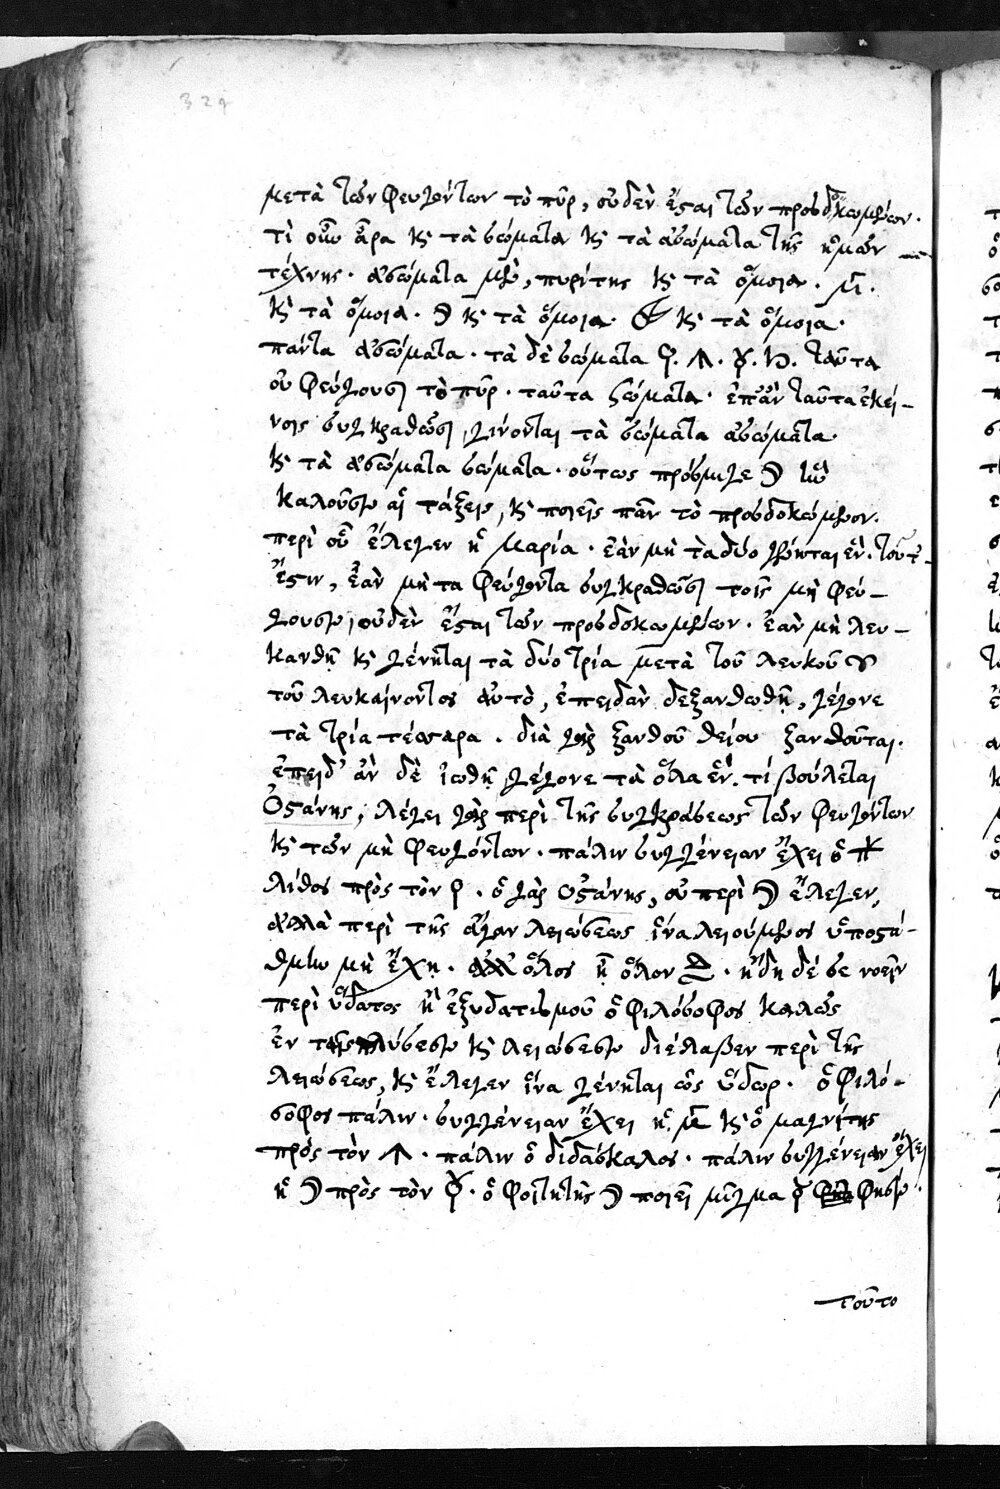 329
μετὰ τῶν φευγόντων τὸ πῦρ, οὐδὲν ἔσται τῶν προσδοκωμένων.
τί οὖν ἄρα κ̀ τὰ σώματα κ̀ τὰ ἀσώματα τῆς ἡμῶν
τέχνης. ἀσώματα μὲν, πυρίτης κ̀ τὰ ὅμοια.
κ̀ τὰ ὅμοια. ☽ κ̀ τὰ ὅμοια. κ̀ τὰ ὅμοια.
πάντα ἀσώματα. τὰ δὲ σώματα ταῦτα
οὐ φεύγουσι τὸ πῦρ. ταῦτα σώματα. ἐπὰν ταῦτα ἐκεί-
νοις συγκραθῶσι, γίνονται τὰ σώματα ἀσώματα.
κ̀ τὰ ἀσώματα σώματα. οὕτως πρόσμιγε ☽
καλοῦσιν αἱ τάξεις, κ̀ ποιεῖς πᾶν τὸ προσδοκώμενον.
περὶ οὗ ἔλεγεν ἡ Μαρία. ἐὰν μὴ τὰ δύο γένηται ἓν. τοῦτ-
ἔστιν, ἐὰν μὴ τὰ φεύγοντα συγκραθῶσι τοῖς μὴ φεύ-
γουσιν, οὐδὲν ἔσται τῶν προσδοκωμένων. ἐὰν μὴ λευ-
κανθῇ κ̀ γένηται τὰ δύο τρία μετὰ τοῦ λευκοῦ
τοῦ λευκαίνοντος αὐτὸ, ἐπειδὰν δεξανθωθῇ, γέγονε
τὰ τρία τέσσαρα. διὰ γὰρ ξανθοῦ θείου ξανθοῦται.
ἐπειδ' ἂν δὲ ἰωθῇ, γέγονε τὰ ὅλα ἓν. τί βούλεται
Ὀστάνης, λέγει γὰρ περὶ τῆς συγκράσεως τῶν φευγόντων
κ̀ τῶν μὴ φευγόντων. πάλιν συγγένειαν ἔχει ὁ
λίθος πρὸς τὸν ♀. ὁ γὰρ Ὀστάνης, οὐ περὶ ☽ ἔλεγεν,
ἀλλὰ περὶ τῆς ἄγαν λειώσεως ἵνα λειούμενος ὑποστά-
θμην μὴ ἔχῃ. ἀλλ' ὅλος ᾖ ὅλον. ἤδη δέ σε νοεῖν
περὶ ὕδατος ἢ ἐξυδατισμοῦ ὁ φιλόσοφος καλῶς
ἐν ταῖς λύσεσιν κ̀ λειώσεσιν διέλαβεν περὶ τῆς
λειώσεως, κ̀ ἔλεγεν ἵνα γένηται ὡς ὕδωρ. ὁ φιλό-
σοφος πάλιν. συγγένειαν ἔχει ἡ κ̀ ὁ μαγνίτης
πρὸς τὸν. πάλιν ὁ διδάσκαλος. πάλιν συγγένειαν ἔχει
ἡ ☽ πρὸς τὸν. ὁ φοιτητὴς ☽ ποιεῖ μῖγμα φησιν.
τοῦτο